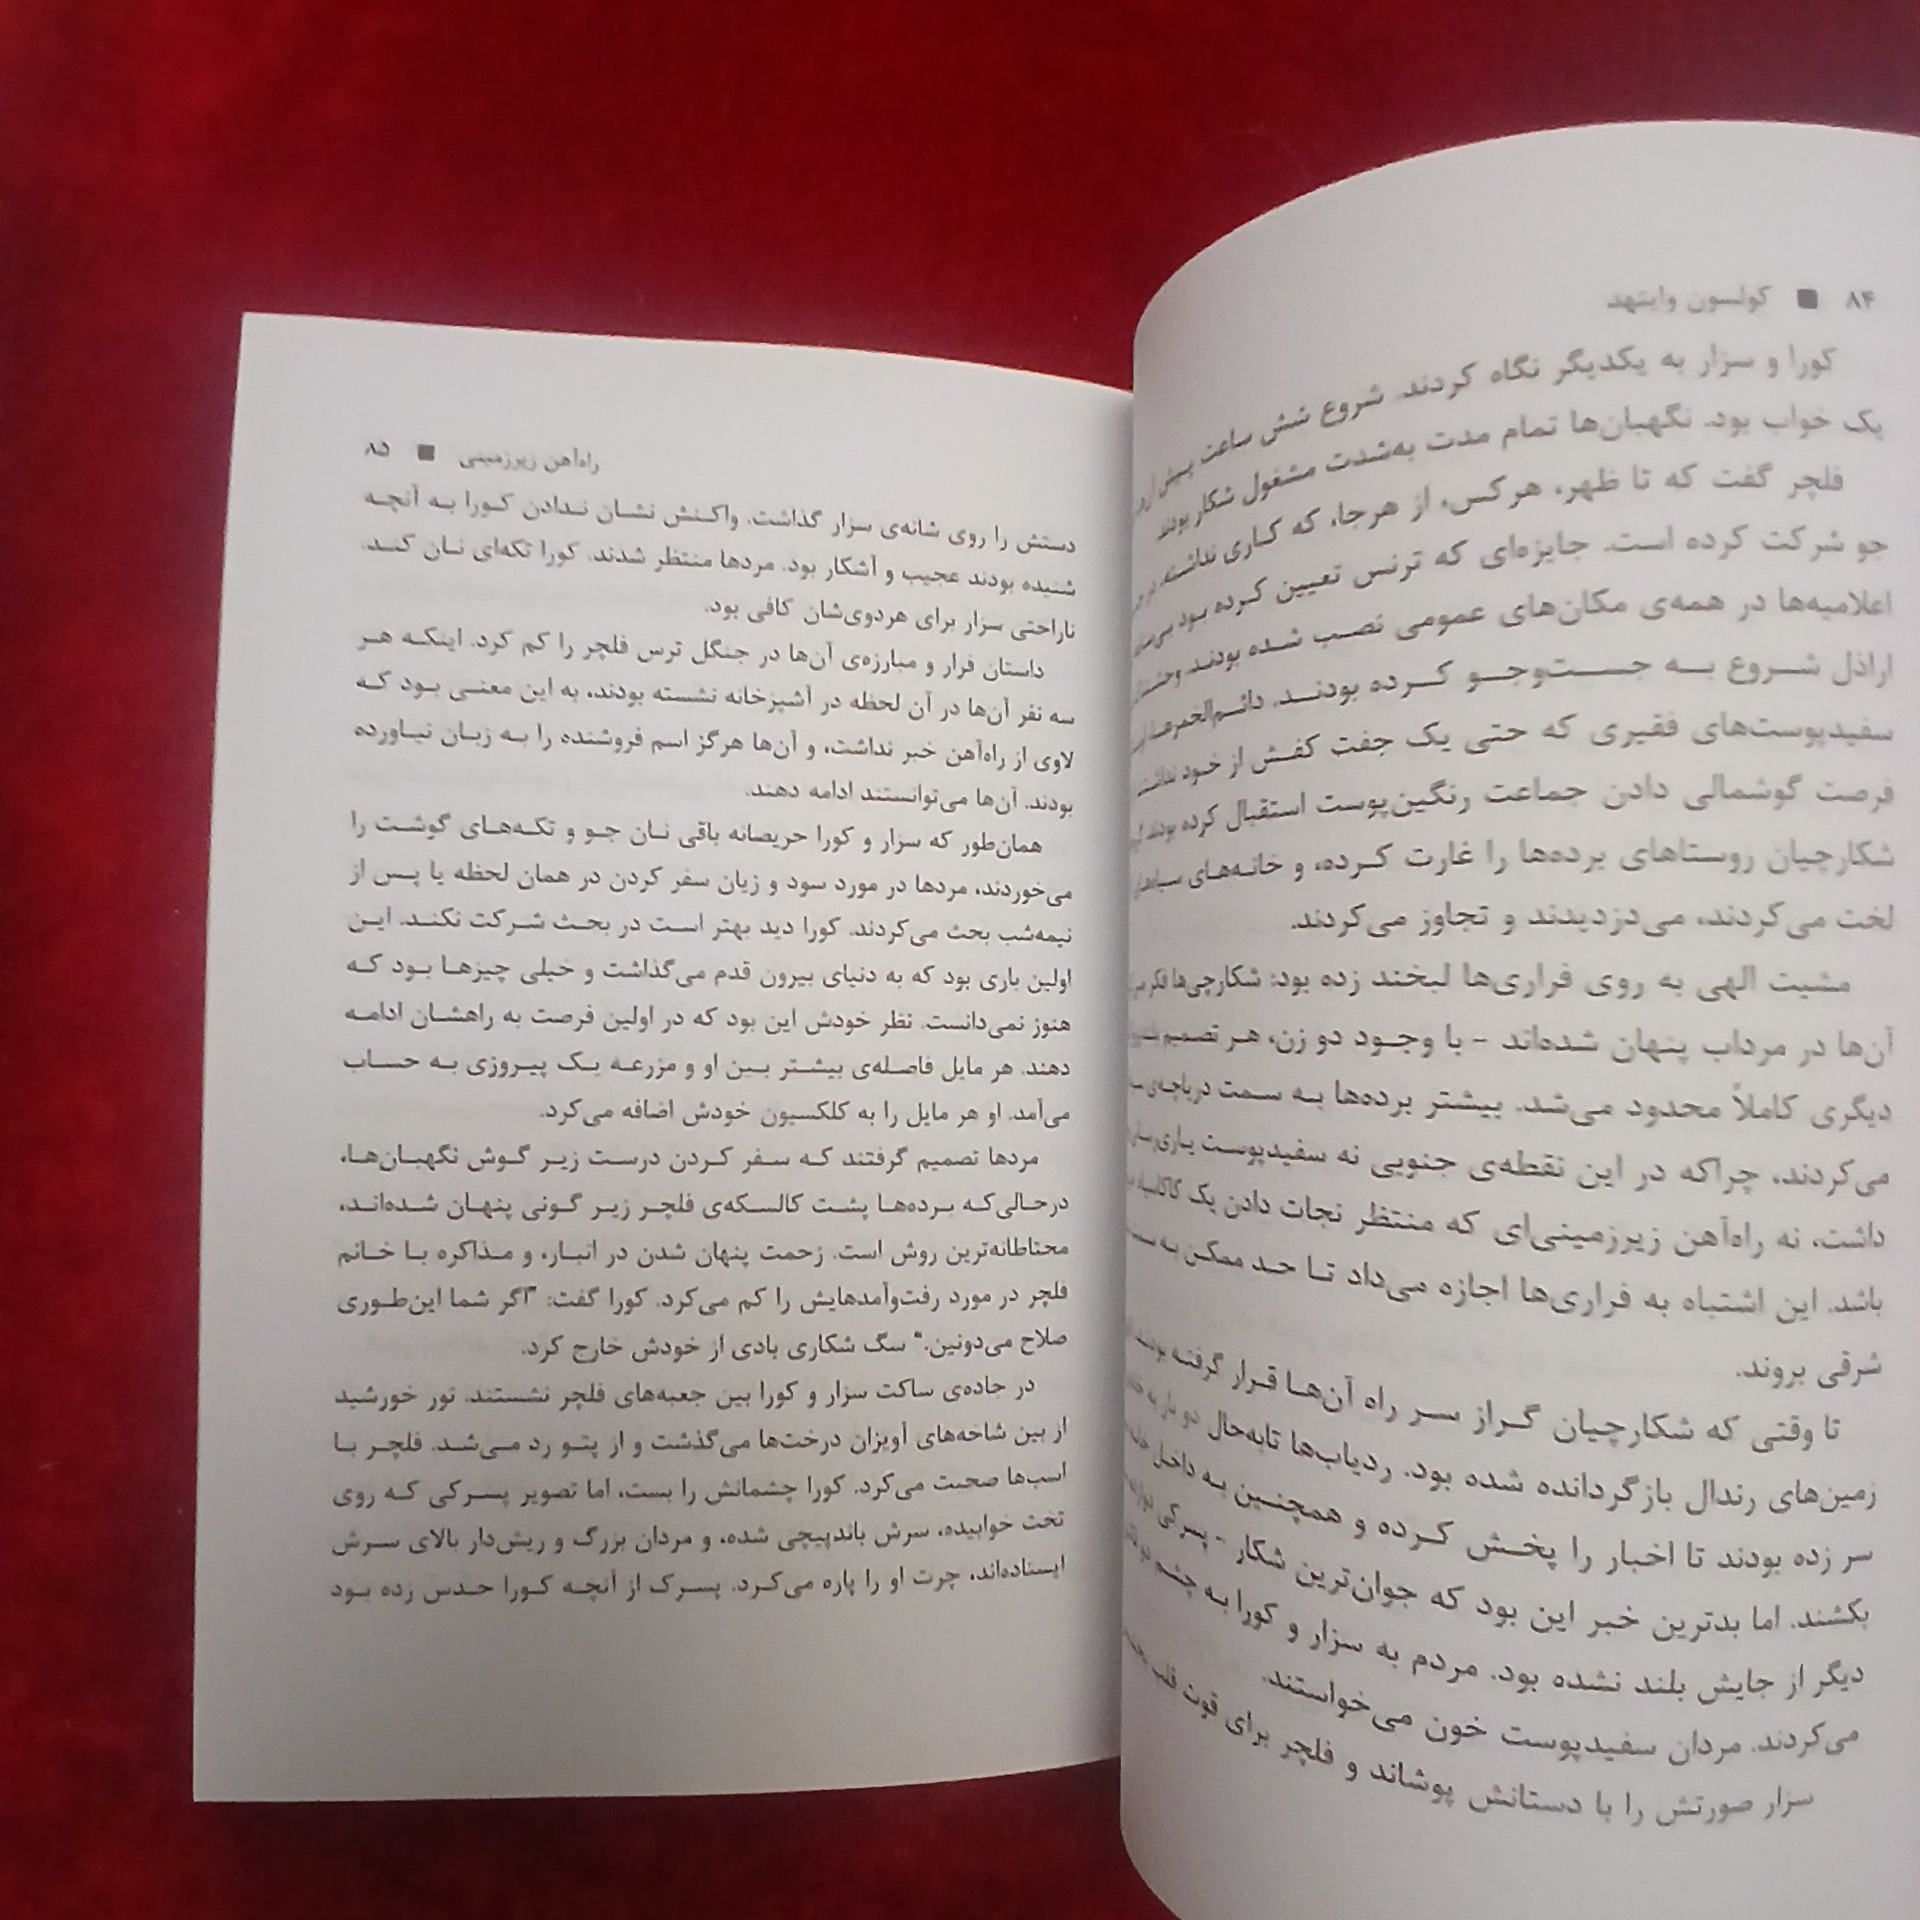 ۸۴ ■ کولسون وایتهد
کورا و سزار به یکدیگر نگاه کردند. شروع شش ساعت پیش از
یک خواب بود. نگهبان‌ها تمام مدت به‌شدت مشغول شکار بودند
فلچر گفت که تا ظهر، هرکس، از هرجا، که کاری نداشته،
جو شرکت کرده است. جایزه‌ای که ترنس تعیین کرده بود
اعلامیه‌ها در همه‌ی مکان‌های عمومی نصب شده بودند.
اراذل شروع به جست‌وجو کرده بودند. دائم‌الخمرها
سفیدپوست‌های فقیری که حتی یک جفت کفش از خود نداشتند
فرصت گوشمالی دادن جماعت رنگین‌پوست استقبال کرده بودند
شکارچیان روستاهای برده‌ها را غارت کرده، و خانه‌های
لخت می‌کردند، می‌دزدیدند و تجاوز می‌کردند.
مشیت الهی به روی فراری‌ها لبخند زده بود: شکارچی‌ها فکر
آن‌ها در مرداب پنهان شده‌اند - با وجود دو زن، هر تصمیم
دیگری کاملاً محدود می‌شد. بیشتر برده‌ها به سمت دریاچه‌ی
می‌کردند، چراکه در این نقطه‌ی جنوبی نه سفیدپوست
داشت، نه راه‌آهن زیرزمینی‌ای که منتظر نجات دادن یک کاکاسیاه
باشد. این اشتباه به فراری‌ها اجازه می‌داد تا حد ممکن به
شرقی بروند.
تا وقتی که شکارچیان گراز سر راه آن‌ها قرار گرفته بودند
زمین‌های رندال بازگردانده شده بود. ردیاب‌ها تابه‌حال دو بار به
سر زده بودند تا اخبار را پخش کرده و همچنین به داخل
بکشند. اما بدترین خبر این بود که جوان‌ترین شکار - پسرکی
دیگر از جایش بلند نشده بود. مردم به سزار و کورا به چشم دو
می‌کردند. مردان سفیدپوست خون می‌خواستند.
سزار صورتش را با دستانش پوشاند و فلچر برای قوت قلب
راه‌آهن زیرزمینی ■ ۸۵
دستش را روی شانه‌ی سزار گذاشت. واکنش نشان ندادن کورا به آنچه
شنیده بودند عجیب و آشکار بود. مردها منتظر شدند. کورا تکه‌ای نان کند.
ناراحتی سزار برای هردوی‌شان کافی بود.
داستان فرار و مبارزه‌ی آن‌ها در جنگل ترس فلچر را کم کرد. اینکه هر
سه نفر آن‌ها در آن لحظه در آشپزخانه نشسته بودند، به این معنی بود که
لاوی از راه‌آهن خبر نداشت، و آن‌ها هرگز اسم فروشنده را به زبان نیاورده
بودند. آن‌ها می‌توانستند ادامه دهند.
همان‌طور که سزار و کورا حریصانه باقی نان جو و تکه‌های گوشت را
می‌خوردند، مردها در مورد سود و زیان سفر کردن در همان لحظه یا پس از
نیمه‌شب بحث می‌کردند. کورا دید بهتر است در بحث شرکت نکند. این
اولین باری بود که به دنیای بیرون قدم می‌گذاشت و خیلی چیزها بود که
هنوز نمی‌دانست. نظر خودش این بود که در اولین فرصت به راهشان ادامه
دهند. هر مایل فاصله‌ی بیشتر بین او و مزرعه یک پیروزی به حساب
می‌آمد. او هر مایل را به کلکسیون خودش اضافه می‌کرد.
مردها تصمیم گرفتند که سفر کردن درست زیر گوش نگهبان‌ها،
درحالی‌که برده‌ها پشت کالسکه‌ی فلچر زیر گونی پنهان شده‌اند،
محتاطانه‌ترین روش است. زحمت پنهان شدن در انبار، و مذاکره با خانم
فلچر در مورد رفت‌وآمدهایش را کم می‌کرد. کورا گفت: "اگر شما این‌طوری
صلاح می‌دونین." سگ شکاری بادی از خودش خارج کرد.
در جاده‌ی ساکت سزار و کورا بین جعبه‌های فلچر نشستند. نور خورشید
از بین شاخه‌های آویزان درخت‌ها می‌گذشت و از پتو رد می‌شد. فلچر با
اسب‌ها صحبت می‌کرد. کورا چشمانش را بست، اما تصویر پسرکی که روی
تخت خوابیده، سرش باندپیچی شده، و مردان بزرگ و ریش‌دار بالای سرش
ایستاده‌اند، چرت او را پاره می‌کرد. پسرک از آنچه کورا حدس زده بود